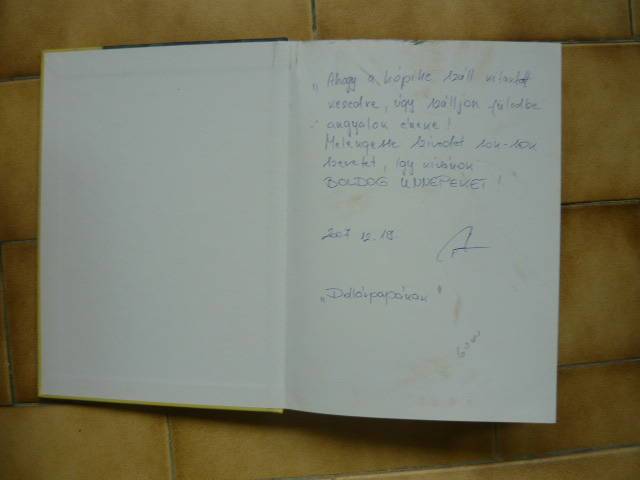 "Ahogy a hópihe száll
, úgy szálljon füledbe
angyalok éneke!
Melengesse szívedet sok-sok
szeretet, így kívánok
BOLDOG ÜNNEPEKET!"
2007. 12. 19.
"Dollárpapának"